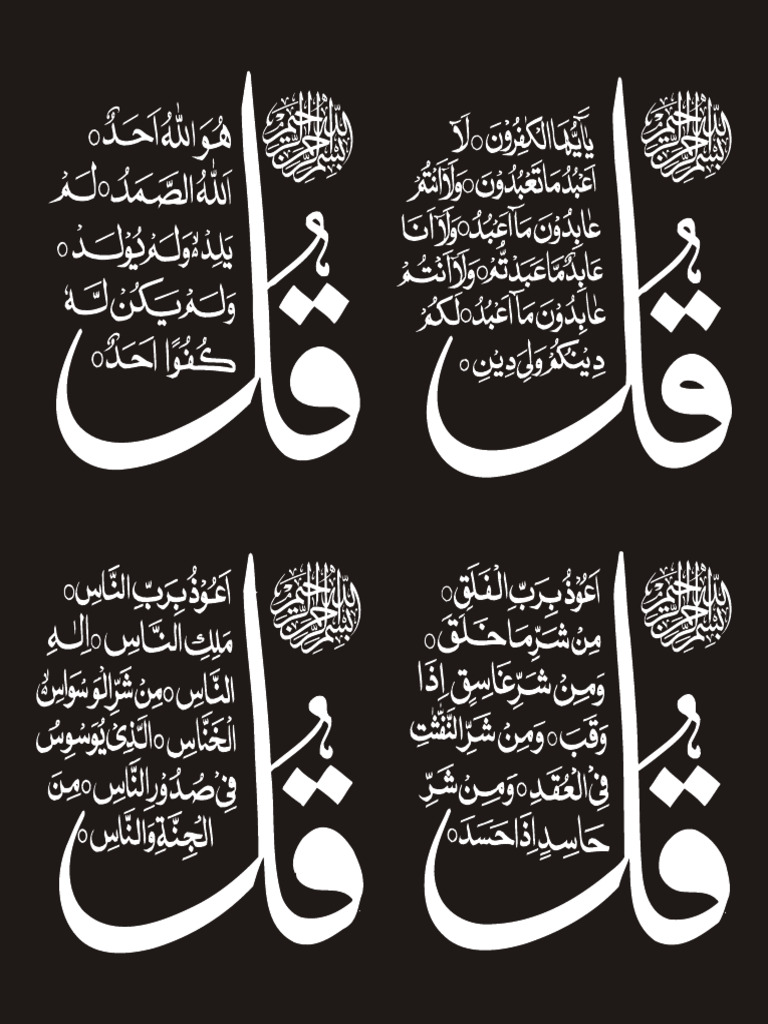 بسم الله الرحمن الرحيم
قُلْ
يٰٓاَيُّهَا الْكٰفِرُوْنَ ○ لَآ
اَعْبُدُ مَا تَعْبُدُوْنَ ○ وَلَآ اَنْتُمْ
عٰبِدُوْنَ مَآ اَعْبُدُ ○ وَلَآ اَنَا
عَابِدٌ مَّا عَبَدْتُّمْ ○ وَلَآ اَنْتُمْ
عٰبِدُوْنَ مَآ اَعْبُدُ ○ لَكُمْ
دِيْنُكُمْ وَلِيَ دِيْنِ ○
بسم الله الرحمن الرحيم
قُلْ
هُوَ اللّٰهُ اَحَدٌ ○
اَللّٰهُ الصَّمَدُ ○ لَمْ
يَلِدْ ۙ وَلَمْ يُوْلَدْ ○
وَلَمْ يَكُنْ لَّهٗ
كُفُوًا اَحَدٌ ○
بسم الله الرحمن الرحيم
قُلْ
اَعُوْذُ بِرَبِّ الْفَلَقِ ○
مِنْ شَرِّ مَا خَلَقَ ○
وَمِنْ شَرِّ غَاسِقٍ اِذَا
وَقَبَ ○ وَمِنْ شَرِّ النَّفّٰثٰتِ
فِى الْعُقَدِ ○ وَمِنْ شَرِّ
حَاسِدٍ اِذَا حَسَدَ ○
بسم الله الرحمن الرحيم
قُلْ
اَعُوْذُ بِرَبِّ النَّاسِ ○
مَلِكِ النَّاسِ ○ اِلٰهِ
النَّاسِ ○ مِنْ شَرِّ الْوَسْوَاسِ ۙ
الْخَنَّاسِ ○ الَّذِىْ يُوَسْوِسُ
فِىْ صُدُوْرِ النَّاسِ ○ مِنَ
الْجِنَّةِ وَالنَّاسِ ○